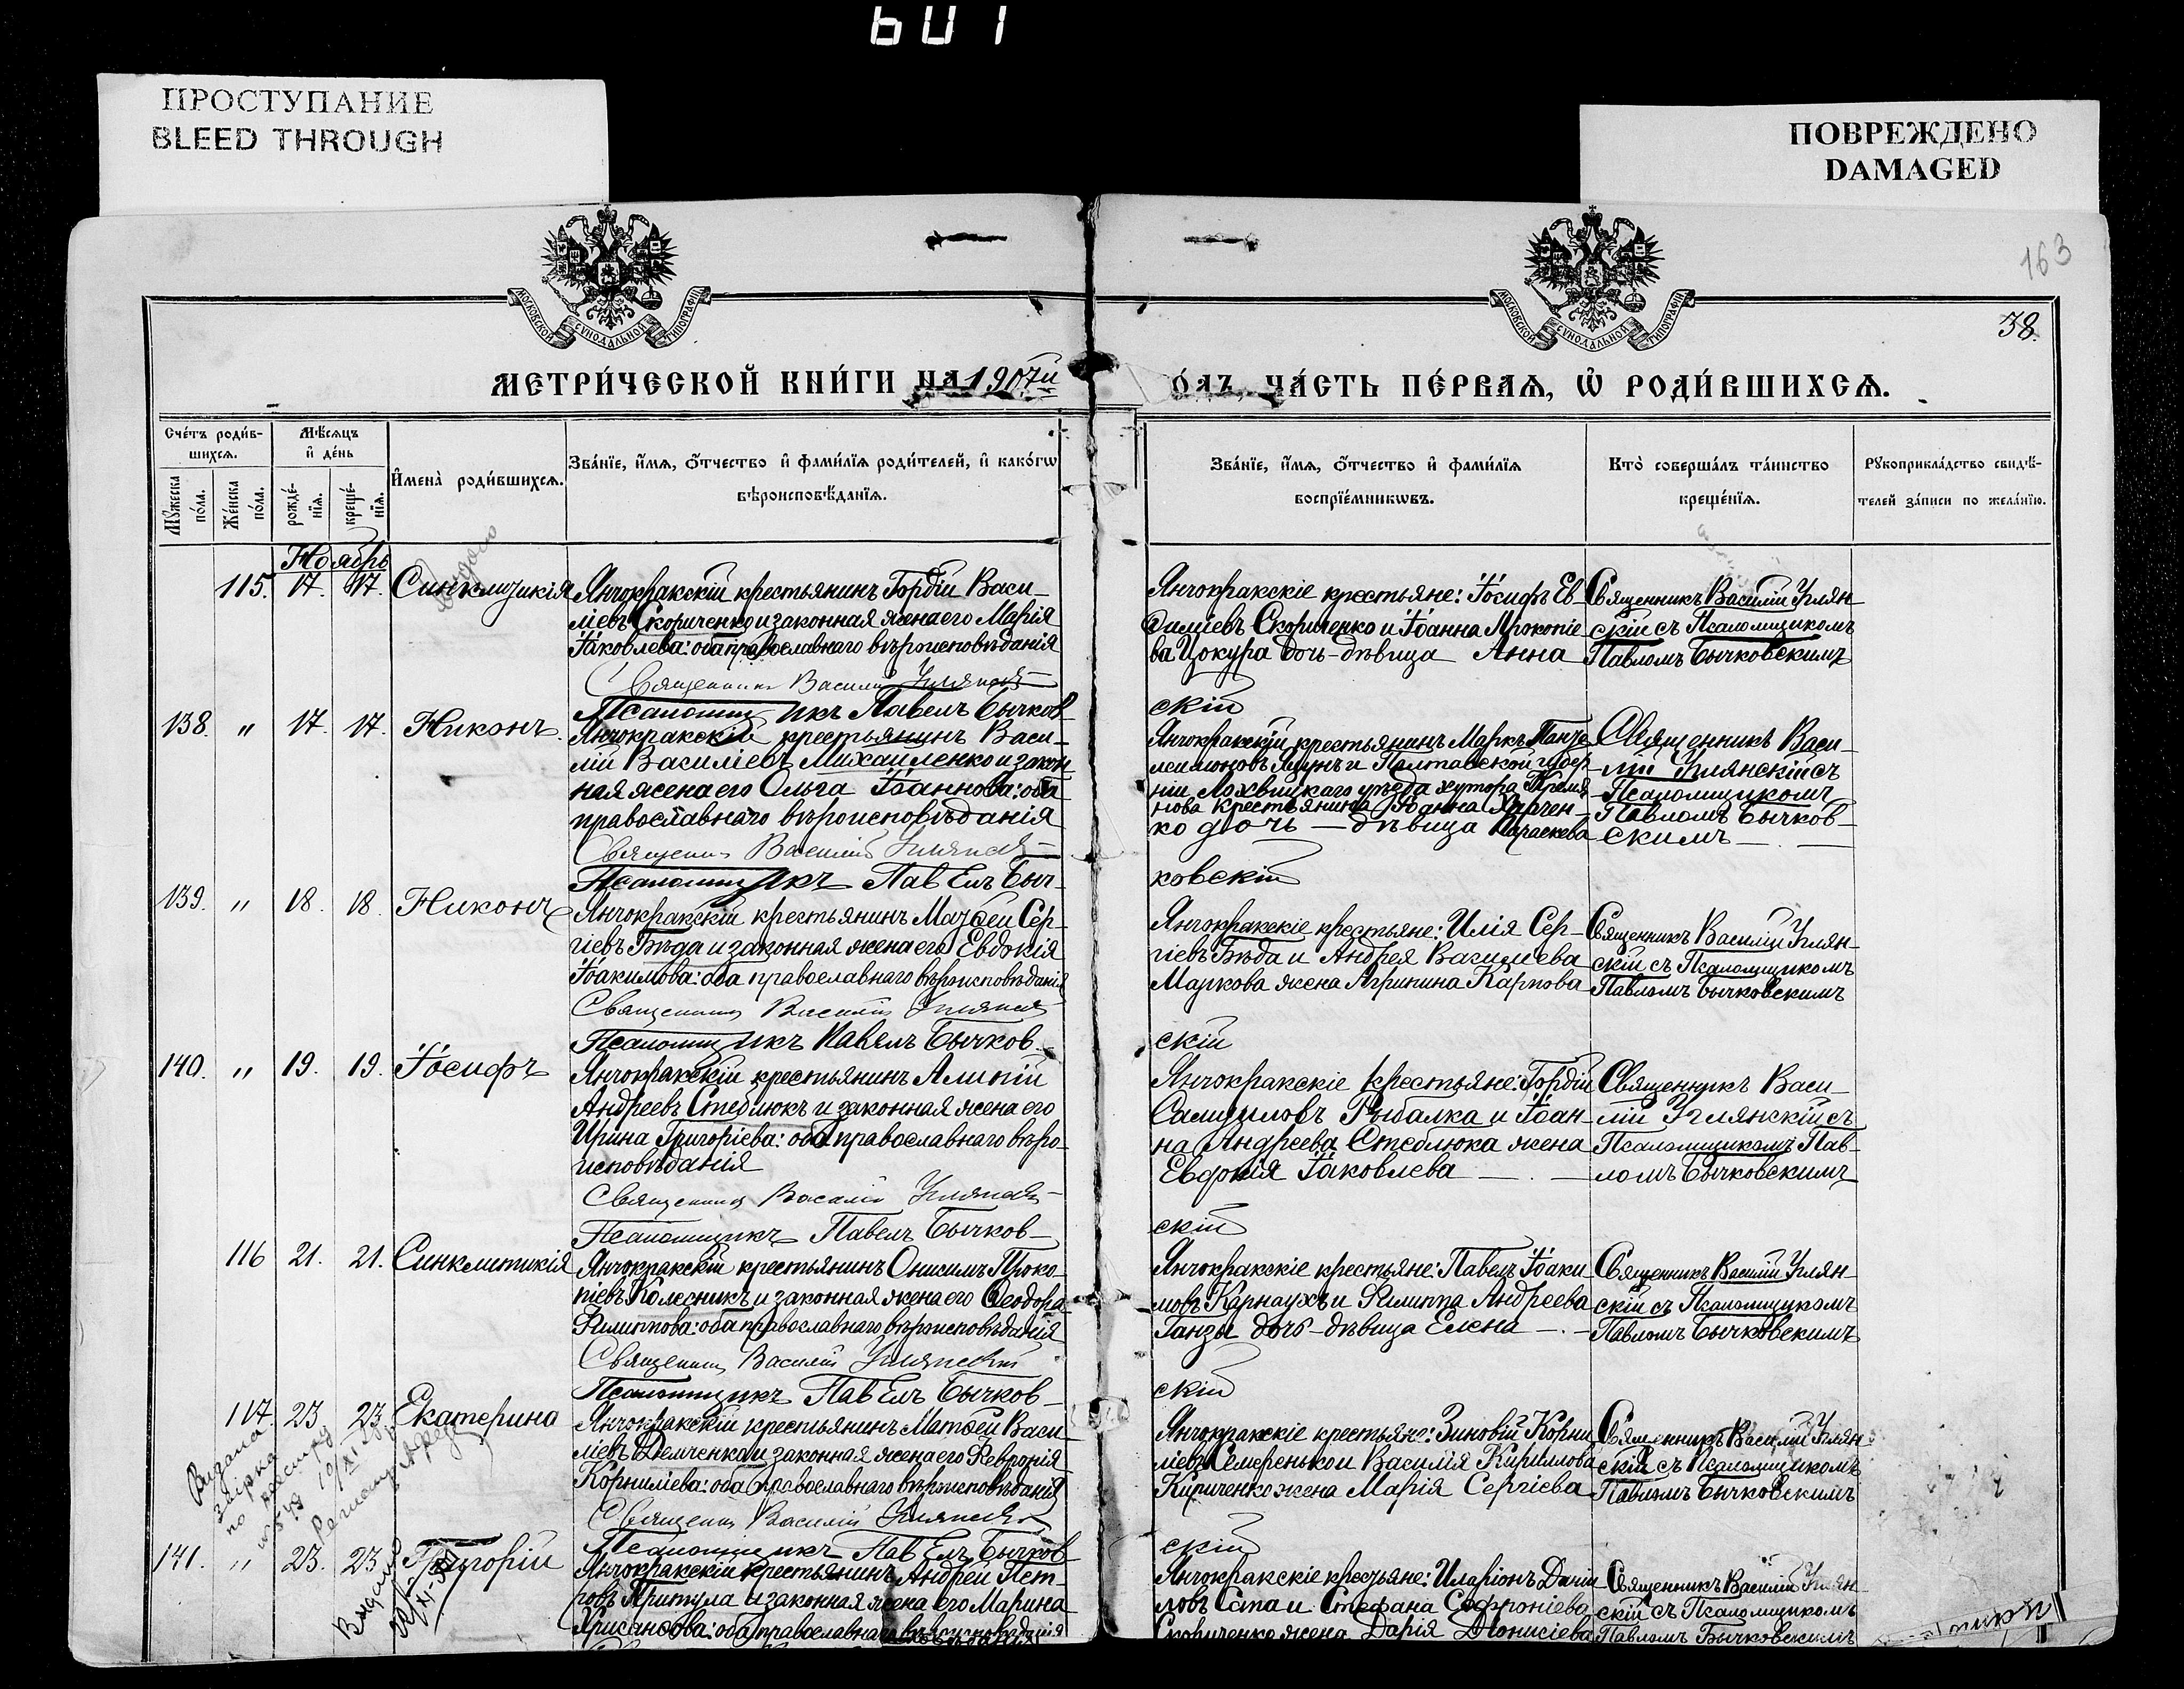 601
ПРОСТУПАНИЕ
BLEED THROUGH
ПОВРЕЖДЕНО
DAMAGED
163
МОСКОВСКОЙ СѴНОДАЛЬНОЙ ТИПОГРАФІИ
МОСКОВСКОЙ СѴНОДАЛЬНОЙ ТИПОГРАФІИ
38.
МЕТРИ́ЧЕСКОЙ КНИ́ГИ НА 1907й
О́ДЪ, ЧА́СТЬ ПЕ́РВАѦ, Ѡ҆ РОДИ́ВШИХСѦ.
Сче́тъ роди́в-
шихсѧ.
Мѣ́сѧцъ
и҆ де́нь
Мꙋ́жеска
по́ла.
Же́нска
по́ла.
рожде́-
нїѧ.
креще́-
нїѧ.
И҆мена̀ роди́вшихсѧ.
Зва́нїе, и҆́мѧ, ѻ҆́тчество и҆ фамѝлїѧ роди́телей, и҆ како́гѡ
вѣроисповѣ́данїѧ.
Зва́нїе, и҆́мѧ, ѻ҆́тчество и҆ фамѝлїѧ
воспрїе́мникѡвъ.
Кто̀ соверша́лъ та́инство
креще́нїѧ.
Рꙋкоприкла́дство свидѣ́-
телей за́писи по жела́нїю.
Ноябрь
115. 17. 17. Синклитикія
Янчокракскій крестьянинъ Гордій Васи-
ліевъ Скориченко и законная жена его Марія
Іаковлева: оба православнаго вѣроисповѣданія
Священникъ Василій Углянскій
Псаломщикъ Павелъ Бычков-
Янчокракскіе крестьяне: Іосифъ Ев-
филіевъ Скориченко и Іоанна Прокопіе-
ва Цокура дочь-дѣвица Анна
скій
Священникъ Василій Углян-
скій съ Псаломщикомъ
Павломъ Бычковскимъ
138. " 17. 17. Никонъ.
Янчокракскій крестьянинъ Васи-
лій Василіевъ Михайленко и закон-
ная жена его Ольга Іоаннова: оба
православнаго вѣроисповѣданія
Священникъ Василій Углянскій
Псаломщикъ Павелъ Быч-
Янчокракскій крестьянинъ Маркъ Панте-
леимоновъ и Полтавской губер-
ніи Лохвицкаго уѣзда хутора
нова крестьянина Іоанна Харчен-
ко дочь — дѣвица Параскева
ковскій
Священникъ Васи-
лій Углянскій съ
Псаломщикомъ
Павломъ Бычков-
скимъ
139. " 18. 18. Никонъ
Янчокракскій крестьянинъ Матѳей Сер-
гіевъ Бѣда и законная жена его Евдокія
Іоакимова: оба православнаго вѣроисповѣданія
Священникъ Василій Углянскій
Псаломщикъ Павелъ Бычков-
Янчокракскіе крестьяне: Илія Сер-
гіевъ Бѣда и Андрея Василиева
Маркова жена Агрипина Карпова
скій
Священникъ Василій Углян-
скій съ Псаломщикомъ
Павломъ Бычковскимъ
140. " 19. 19. Іосифъ
Янчокракскій крестьянинъ Алипій
Андреевъ Стеблюкъ и законная жена его
Ирина Григоріева: оба православнаго вѣро-
исповѣданія
Священникъ Василій Углянскій
Псаломщикъ Павелъ Бычков-
Янчокракскіе крестьяне: Гордій
Самуиловъ Рыбалка и Іоан-
на Андреева Стеблюка жена
Евфимія Іаковлева
скій
Священникъ Васи-
лій Углянскій съ
Псаломщикомъ Пав-
ломъ Бычковскимъ
116 21. 21. Синклитикія
Янчокракскій крестьянинъ Онисимъ Проко-
піевъ Колесникъ и законная жена его Ѳеодора
Филиппова: оба православнаго вѣроисповѣданія
Священникъ Василій Углянскій
Псаломщикъ Павелъ Бычков-
Янчокракскіе крестьяне: Павелъ Іоаки-
мовъ Карнаухъ и Филиппа Андреева
Ганзы дочь-дѣвица Елена
скій
Священникъ Василій Углян-
скій съ Псаломщикомъ
Павломъ Бычковскимъ
117. 23. 23. Екатерина
Янчокракскій крестьянинъ Матѳей Васи-
ліевъ Демченко и законная жена его Февронія
Корниліева: оба православнаго вѣроисповѣданія
Священникъ Василій Углянскій
Псаломщикъ Павелъ Бычков-
Янчокракскіе крестьяне: Зиновій Корни-
ліевъ Семеренько и Василія Кириллова
Кириченко жена Марія Сергіева
скій
Священникъ Василій Углян-
скій съ Псаломщикомъ
Павломъ Бычковскимъ
141. " 23. 23 Григорій
Янчокракскій крестьянинъ Андрей Пет-
ровъ Притула и законная жена его Марина
Хрисанфова: оба православнаго вѣроисповѣданія
Янчокракскіе крестьяне: Иларіонъ Даніи-
ловъ Сыпа и Стефана Софроніева
Скориченко жена Дарія Діонисіева
Священникъ Василій Углян-
скій съ Псаломщикомъ
Павломъ Бычковскимъ